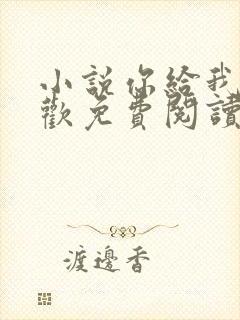 小說你給我
歡免費閱讀
渡邊香